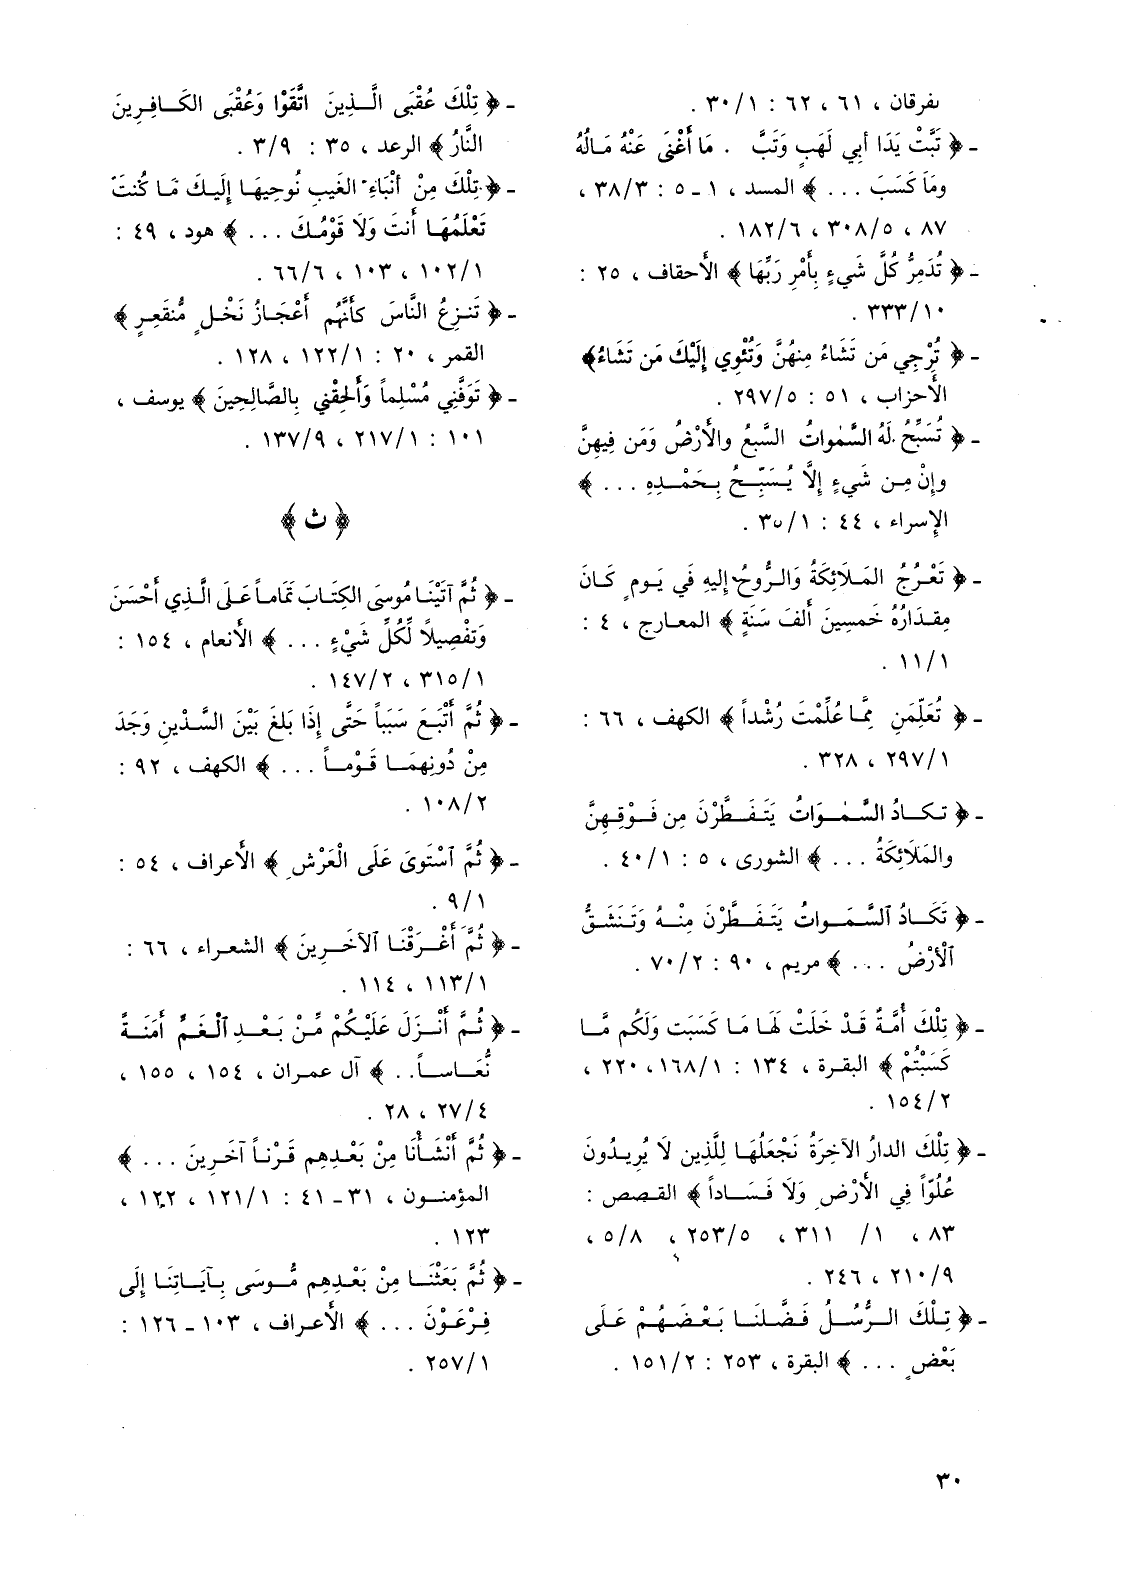 ـفرقان ، ٦١ ، ٦٢ : ٣٠/١ .
- ﴿ تَبَّتْ يَدَا أبي لَهَبٍ وَتَبَّ . مَا أَغْنَى عَنْهُ مَالُهُ
ومَا كَسَبَ ... ﴾ المسد ، ١ ـ ٥ : ٣٨/٣ ،
٨٧ ، ٣٠٨/٥ ، ١٨٢/٦ .
- ﴿ تُدَمِرُّ كُلَّ شَيءٍ بِأَمْرِ رَبِّهَا ﴾ الأحقاف ، ٢٥ :
٣٣٣/١٠ .
- ﴿ تُرْجِي مَن تَشَاءُ مِنهُنَّ وَتُئْوِي إِلَيْكَ مَن تَشَاءُ﴾
الأحزاب ، ٥١ : ٢٩٧/٥ .
- ﴿ تُسَبِّحُ لَهُ السَّمٰواتُ السَّبعُ والأَرْضُ وَمَن فِيهِنَّ
وإنْ مِـن شَيءٍ إلاَّ يُـسَبِّـحُ بِـحَمْـدِهِ ... ﴾
الإسراء ، ٤٤ : ٣٥/١ .
- ﴿ تَعْرُجُ المَلَائِكَةُ وَالرُّوحُ إليهِ فَي يَومٍ كَانَ
مِقدَارُهُ خَمسِينَ أَلفَ سَنَةٍ ﴾ المعارج ، ٤ :
١١/١ .
- ﴿ تُعَلِّمَنِ مِمَّا عُلِّمْتَ رُشْداً ﴾ الكهف ، ٦٦ :
٢٩٧/١ ، ٣٢٨ .
- ﴿ تـكـادُ السَّمٰـوَاتُ يَتَفَـطَّرْنَ مِن فَـوْقِـهِنَّ
والمَلَائِكَةُ ... ﴾ الشورى ، ٥ : ٤٠/١ .
- ﴿ تَكَـادُ ٱلسَّمَـواتُ يَتَفَـطَّرْنَ مِنْـهُ وَتَنشَقُّ
ٱلْأَرْضُ ... ﴾ مريم ، ٩٠ : ٧٠/٢ .
- ﴿ تِلْكَ أُمَّةٌ قَدْ خَلَتْ لَهَا مَا كَسَبَت وَلَكُم مَّـا
كَسَبْتُمْ ﴾ البقرة ، ١٣٤ : ١٦٨/١ ، ٢٢٠ ،
١٥٤/٢ .
- ﴿ تِلْكَ الدارُ الآخِرَةُ نَجْعَلُهَا لِلَّذِين لاَ يُرِيدُونَ
عُلُوّاً فِي الأَرْضِ وَلَا فَسَـاداً ﴾ القصص :
٨٣ ، ١/ ٣١١ ، ٢٥٣/٥ ، ٥/٨ ،
٢١٠/٩ ، ٢٤٦ .
- ﴿ تِـلْكَ الـرُّسُـلُ فَضَّلنَـا بَـعْضَـهُـمْ عَـلَى
بَعْضٍ ... ﴾ البقرة ، ٢٥٣ : ١٥١/٢ .
- ﴿ تِلْكَ عُقْبَى الَّـذِينَ اتَّقَوْا وَعُقْبَى الكَـافِـرِينَ
النَّارُ ﴾ الرعد ، ٣٥ : ٣/٩ .
- ﴿ تِلْكَ مِنْ أَنْبَاءِ الغَيبِ نُوحِيهَا إِلَيكَ مَا كُنتَ
تَعْلَمُهَا أَنتَ وَلَا قَوْمُكَ ... ﴾ هود ، ٤٩ :
١٠٢/١ ، ١٠٣ ، ٦٦/٦ .
- ﴿ تَنـزِعُ النَّاسَ كأَنَّهُم أَعْجَـازُ نَخْـلٍ مُّنقَعِـرٍ ﴾
القمر ، ٢٠ : ١٢٢/١ ، ١٢٨ .
- ﴿ تَوَفَّنِي مُسْلِماً وَأَلحِقْنِي بِالصَّالِحِينَ ﴾ يوسف ،
١٠١ : ٢١٧/١ ، ١٣٧/٩ .
﴿ ث ﴾
- ﴿ ثُمَّ آتَيْنَا مُوسَى الكِتَابَ تَمَاماً عَلَى الَّذِي أَحْسَنَ
وَتَفْصِيلاً لِّكُلِّ شَيْءٍ ... ﴾ الأنعام ، ١٥٤ :
٣١٥/١ ، ١٤٧/٢ .
- ﴿ ثُمَّ أَتْبَعَ سَبَباً حَتَّى إِذَا بَلغَ بَيْنَ السَّدْينِ وَجَدَ
مِنْ دُونِهِمَـا قَـوْمـاً ... ﴾ الكهف ، ٩٢ :
١٠٨/٢ .
- ﴿ ثُمَّ ٱسْتَوىَ عَلَى الْعَرْشِ ﴾ الأعراف ، ٥٤ :
٩/١ .
- ﴿ ثُمَّ أَغْـرَقْنَا ٱلآخَـرِينَ ﴾ الشعراء ، ٦٦ :
١١٣/١ ، ١١٤ .
- ﴿ ثُـمَّ أَنْـزَلَ عَلَيْكُمْ مِّـنْ بَـعْـدِ ٱلْغَمِّ أَمَنَـةً
نُّعَـاسـاً.. ﴾ آل عمران ، ١٥٤ ، ١٥٥ ،
٢٧/٤ ، ٢٨ .
- ﴿ ثُمَّ أَنْشَأْنَا مِنْ بَعْدِهِم قَـرْنـاً آخَـرِينَ ... ﴾
المؤمنـون ، ٣١ ـ ٤١ : ١٢١/١ ، ١٢٢ ،
١٢٣ .
- ﴿ ثُمَّ بَعَثْنَـا مِنْ بَعْـدِهِم مُّـوسَى بِـآيَـاتِنَا إلَى
فِـرْعَـوْنَ ... ﴾ الأعراف ، ١٠٣ ـ ١٢٦ :
٢٥٧/١ .
٣٠